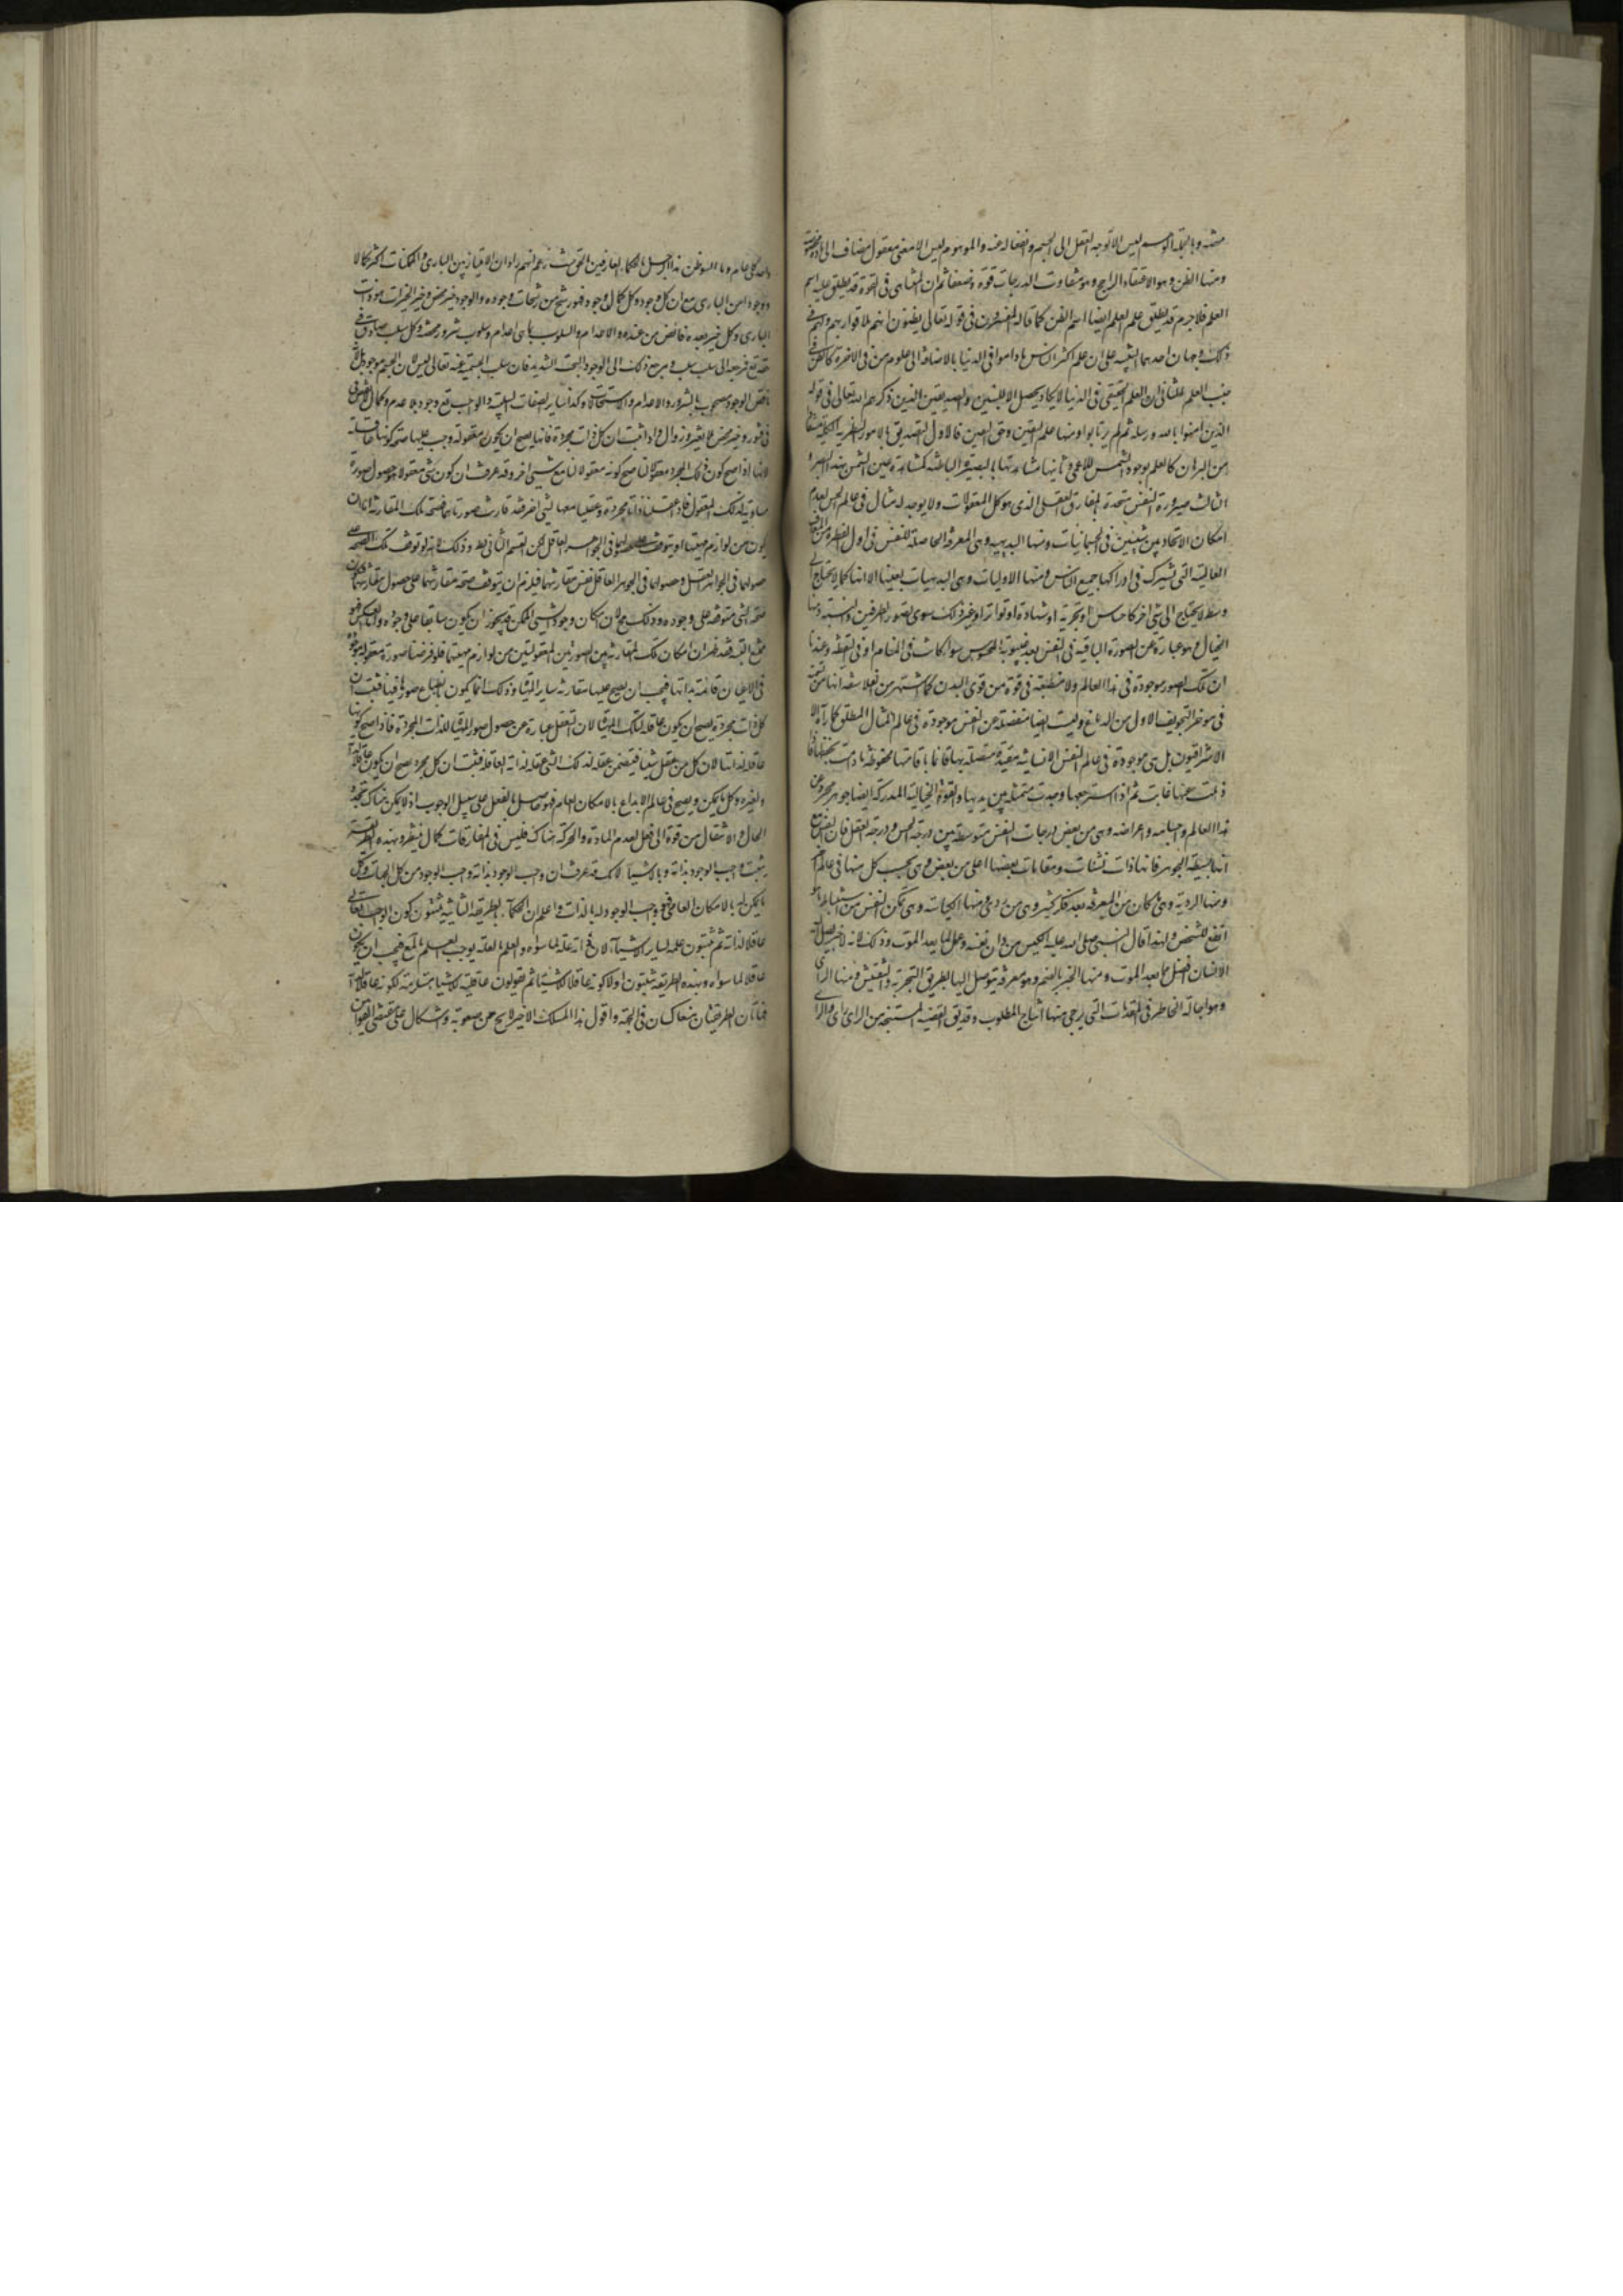 محضة وبالجملة التوهم ليس الا توجه العقل الى الجسم وانفعاله عنه والموهوم ليس الا معنى معقول مضاف الى مادة مخصوصة
ومنها الظن وهو الاعتقاد الراجح وهو متفاوت الدرجات قوة وضعفا ثم ان المتناهى فى القوة قد يطلق عليه اسم
العلم فلا جرم قد يطلق على العلم ايضا اسم الظن كما قاله المفسرون فى قوله تعالى يظنون انهم ملاقوا ربهم ولهم فى
ذلك وجهان احدهما التنبيه على ان علم اكثر الناس ما داموا فى الدنيا بالاضافة الى علومهم فى الاخرة كالظن فى
جنب العلم والثانى ان العلم الحقيقى فى الدنيا لا يكاد يحصل الا للنبيين والصديقين الذين ذكرهم الله تعالى فى قوله
الذين امنوا بالله ورسله ثم لم يرتابوا ومنها علم اليقين وحق اليقين فالاول التصديق بالامور النظرية الكلية مستفادا
من البرهان كالعلم بوجود الشمس للاعمى وثانيها مشاهدتها بالبصيرة الباطنة كمشاهدة عين الشمس بهذا البصر
الثالث صيرورة النفس متحدة بالمفارق العقلى الذى هو كل المعقولات ولا يوجد له مثال فى عالم الحس لعدم
امكان الاتحاد بين شيئين فى الجسمانيات ومنها البديهة وهى المعرفة الحاصلة للنفس فى اول الفطرة من المعارف
العامية التى يشترك فى ادراكها جميع الناس ومنها الاوليات وهى البديهيات بعينها الا انها كما لا يحتاج الى
وسط لا يحتاج الى شئ اخر كاحساس او تجربة او شهادة او تواتر او غير ذلك سوى تصور الطرفين والنسبة ومنها
الخيال وهو عبارة عن الصورة الباقية فى النفس بعد غيبوبة المحسوس سواء كانت فى المنام او فى اليقظة وعندنا
ان تلك الصور موجودة فى هذا العالم ولا منطبعة فى قوة من قوى البدن كما اشتهر من الفلاسفة انها مرتسمة
فى موخر التجويف الاول من الدماغ وليست ايضا منفصلة عن النفس موجودة فى عالم المثال المطلق كما رآه
الاشراقيون بل هى موجودة فى عالم النفس الانسانية مقيدة متصلة بها قائمة باقامتها محفوظة ما دامت تحفظها فاذا
ذهلت عنها غابت ثم اذا استرجعها وجدت متمثلة بين يديها والقوة الخيالية المدركة ايضا جوهر مجرد عن
هذا العالم واجسامه واعراضه وهى من بعض درجات النفس متوسطة بين درجة الحس ودرجة العقل فان النفس مع
انها بسيطة الجوهر فانها ذات نشئات ومقامات بعضها اعلى من بعض وهى بحسب كل منها فى عالم اخر
ومنها الروية وهى ما كان من المعرفة بعد فكر كثير وهى من روى ومنها الكياسة وهى تمكن النفس من استنباط ما هو
انفع للشخص ولهذا قال النبى صلى الله عليه الكيس من دان نفسه وعمل لما بعد الموت وذلك لانه لا خير يصل اليه
الانسان افضل مما بعد الموت ومنها الخبر بالضم وهو معرفة يتوصل اليها بطريق التجربة والتفتيش ومنها الراى
وهو اجالة الخاطر فى المقدمات التى يرجى منها انتاج المطلوب وقد يقال للقضية المستنتجة من الراى راى والراى
الحكماء العارفين
ووجودا من البارى مع ان كل وجود وكل كمال وجود فهو رشح من رشحات وجوده والوجود خير محض وخير الخيرات هو ذات
البارى وكل خير بعده فائض من عنده والاعدام والسلوب بما هى اعدام وسلوب شرور محضة وكل سلب صادق فى
حقه تعالى فمرجعه الى سلب سلب ومرجع ذلك الى الوجود البحت الشديد فان سلب الجسمية عنه تعالى ليس لان الجسم موجود بل لانه
ناقص الوجود مصحوب بالشرور والاعدام والاستحالات وكذا سائر الصفات السلبية والواجب تعالى وجود بلا عدم وكمال بلا نقص
وفتور وخير محض بلا تغير وزوال واذا ثبت ان كل ذات مجردة فانها يصح ان يكون معقولة وجب عليها صحة كونها عاقلة
لانها اذا صح كون ذلك المجرد معقولا لنا صح كونه معقولا لنا مع شئ اخر وقد عرفت ان كون شئ معقولا هو حصول صورة
مساوية لذلك المعقول فاذا عقلنا ذاتا مجردة وعقلنا معها شئ اخر فقد قارنت صورتاهما فصحة تلك المقارنة اما ان
يكون من لوازم ماهيتها او يتوقف على حصولها فى الجوهر العاقل لكن القسم الثانى باطل وذلك لانه لو توقف تلك الصحة على
حصولهما فى الجوهر العاقل وحصولهما فى الجوهر العاقل نفس مقارنتهما فيلزم ان يتوقف صحة مقارنتهما على حصول مقارنتهما فكان
صحة الشئ متوقفة على وجوده وذلك محال لان امكان وجود الشئ الممكن قد يجوز ان يكون سابقا على وجوده واما بالعكس فهو
ممتنع البتة فقد ظهر ان امكان تلك المقارنة بين الصورتين المعقولتين من لوازم ماهيتهما فلو فرضنا صورة معقولة موجودة
فى الاعيان قائمة بذاتها فيجب ان يصح عليها مقارنة سائر الاشياء وذلك انما يكون بانطباع صورها فيها فثبت ان
كل ذات مجردة يصح ان يكون عاقلة لتلك الاشياء لان التعقل عبارة عن حصول صور الاشياء للذات المجردة فاذا صح كونها
عاقلة لذاتها لان كل من عقل شيئا فيتضمن عقله لذلك الشئ عقله لذاته العاقلة فثبت ان كل مجرد يصح ان يكون عاقلا لذاته
ولغيره وكل ما يمكن ويصح فى عالم الابداع بالامكان العام فهو حاصل بالفعل على سبيل الوجوب اذ لا يمكن هناك تجدد
الحال والانتقال من قوة الى فعل لعدم المادة والحركة هناك فليس فى المفارقات كمال منتظر وبهذه الطريقة
يثبت واجب الوجود بذاته وبالاشياء لانك قد عرفت ان واجب الوجود بذاته واجب الوجود من كل الجهات وكل
ما يمكن له بالامكان العامى فهو واجب الوجود له بالذات واعلم ان الحكماء بالطريقة الثانية يثبتون كون الواجب تعالى
عاقلا لذاته ثم يثبتون علمه بسائر الاشياء لان ذاته علة لما سواه والعلم بالعلة يوجب العلم بالمعلول فيجب ان يكون
عاقلا لما سواه وبهذه الطريقة يثبتون اولا كونه عاقلا للاشياء ثم يقولون عاقلية الاشياء مستلزمة لكونه عاقلا لذاته
فهاتان الطريقتان متعاكستان فى الحجة واقول هذا المسلك الاخير لا يخ عن صعوبة واشكال على مقتضى القوانين